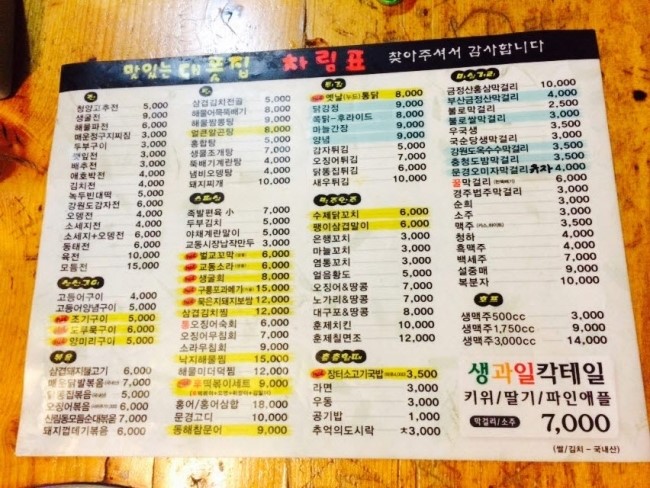 맛있는 대풍집 차림표 찾아주셔서 감사합니다
전
청양고추전 5,000
생굴전 9,000
해물파전 6,000
매운정구지찌짐 3,000
두부구이 3,000
깻잎전 3,000
배추전 3,000
애호박전 4,000
김치전 4,000
녹두빈대떡 5,000
강원도감자전 5,000
오뎅전 4,000
소세지전 4,000
소세지+오뎅전 6,000
동태전 6,000
육전 10,000
모듬전 15,000
고등어구이 4,000
고등어양념구이 5,000
조기구이 5,000
도루묵구이 5,000
양미리구이 5,000
볶음
삼겹돼지불고기 6,000
매운닭발볶음 5,000
닭똥집볶음 5,000
오징어볶음 6,000
신림동모듬순대볶음 7,000
돼지껍데기볶음 6,000
삼겹김치전골 5,000
해물어묵뚝배기 8,000
해물짬뽕탕 9,000
얼큰알곤탕 8,000
홍합탕 5,000
생물조개탕 7,000
뚝배기계란탕 4,000
냄비오뎅탕 7,000
돼지찌개 10,000
족발편육 小 7,000
두부김치 5,000
야채계란말이 5,000
교동시장납작만두 3,000
벌교꼬막 6,000
교동소라 6,000
생굴회 8,000
구룡포과메기 15,000
묵은지돼지보쌈 12,000
삼겹김치찜 12,000
통오징어숙회 6,000
오징어무침회 7,000
소라무침회 9,000
낙지해물찜 15,000
해물미더덕찜 12,000
무떡볶이세트 9,000
홍어/홍어삼합 18,000
문경고디 10,000
동해참문어 9,000
튀김
옛날(두드)통닭 8,000
닭강정 9,000
쪽닭-후라이드 9,000
마늘간장 9,000
양념 9,000
감자튀김 5,000
오징어튀김 7,000
닭똥집튀김 6,000
새우튀김 10,000
마른안주
수제닭꼬치 6,000
팽이삼겹말이 6,000
은행꼬치 3,000
마늘꼬치 3,000
염통꼬치 3,000
얼음황도 5,000
오징어&땅콩 8,000
노가리&땅콩 7,000
대구포&땅콩 8,000
훈제치킨 12,000
훈제칠면조 12,000
장터소고기국밥 3,500
라면 3,000
우동 3,000
공기밥 1,000
추억의도시락 大3,000
마실거리
금정산홍삼막걸리 10,000
부산금정산막걸리 4,000
불로막걸리 2,500
불로쌀막걸리 3,000
우국생 3,500
국순당생막걸리 3,000
강원도옥수수막걸리 3,500
충청도밤막걸리 3,500
문경오미자막걸리 유자 4,000
꿀막걸리 6,000
경기도잣막걸리 3,000
순희 3,000
소주 3,000
맥주 3,500
청하 4,000
흑맥주 4,000
백세주 7,000
설중매 9,000
복분자 10,000
호프
생맥주500cc 3,000
생맥주1,750cc 9,000
생맥주3,000cc 14,000
생과일칵테일
키위/딸기/파인애플
막걸리/소주 7,000
(쌀/김치 - 국내산)